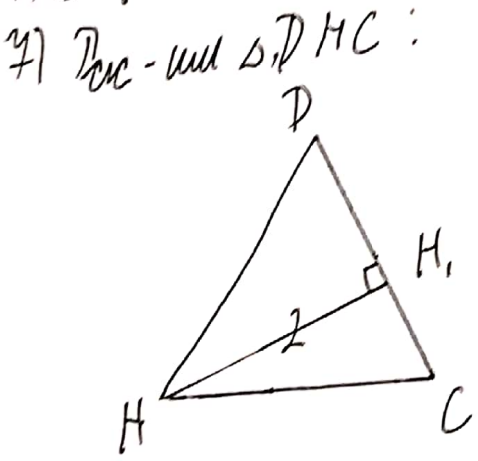 7) Рас-им △DHC:
D
H₁
2
H
C